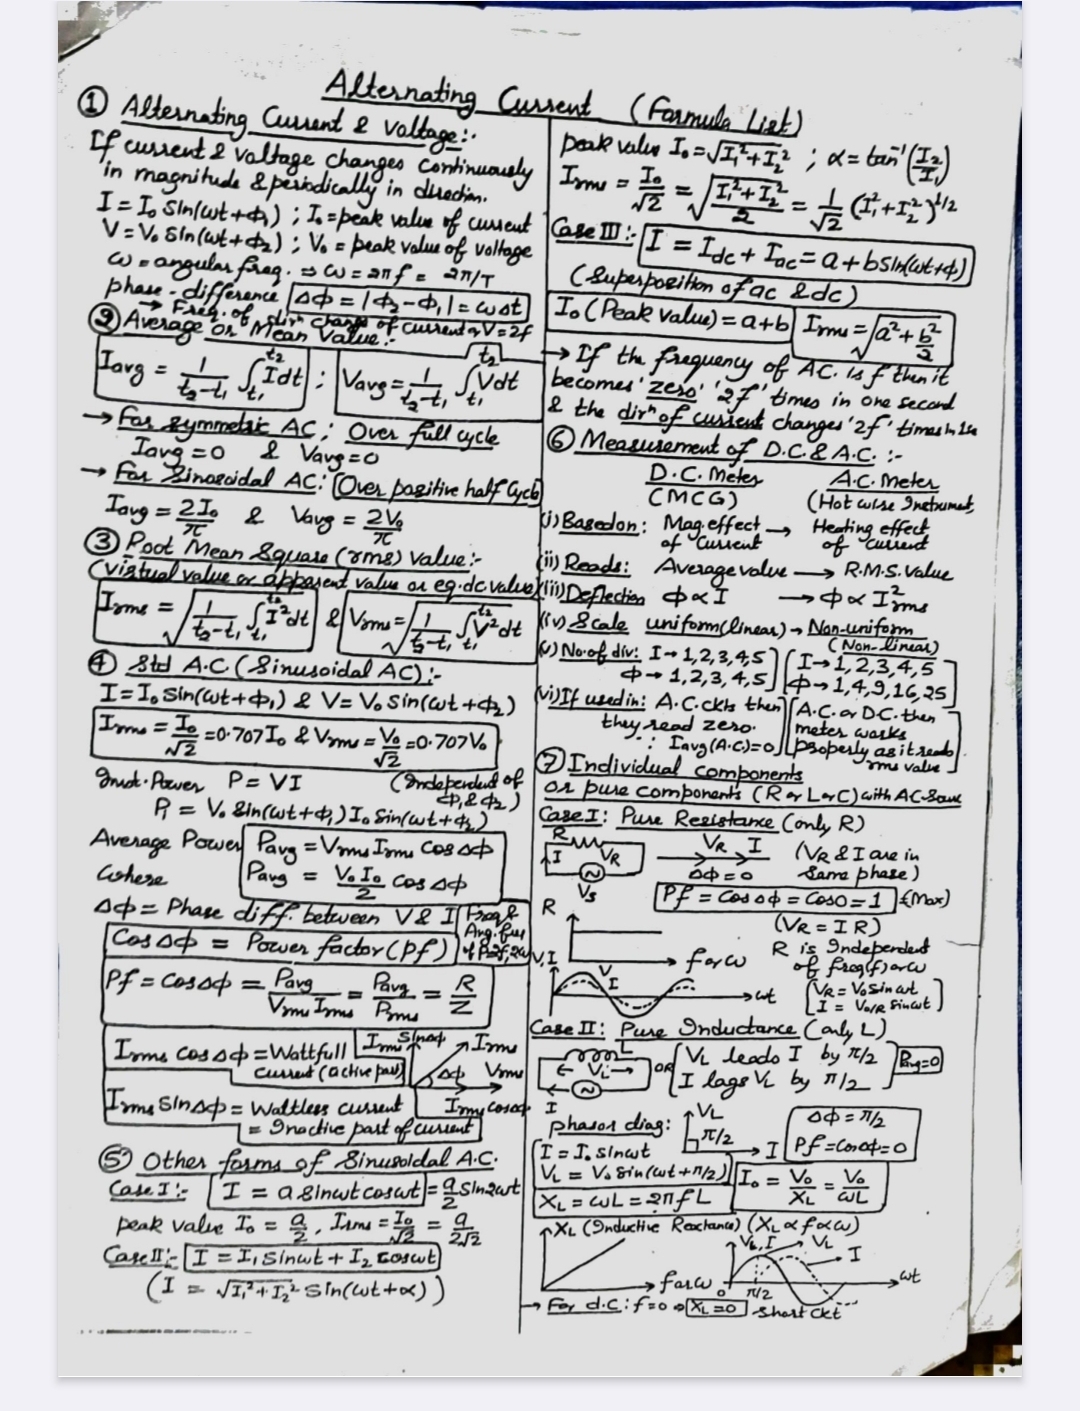 Alternating Current (Formula List)
① Alternating Current & voltage:-
If current & voltage changes continuously
in magnitude & periodically in direction.
I = I₀ Sin(ωt+ϕ₁) ; I₀ = peak value of current
V = V₀ Sin(ωt+ϕ₂) ; V₀ = peak value of voltage
ω = angular freq. ⇒ ω = 2πf = 2π/T
phase-difference Δϕ = |ϕ₂-ϕ₁| = ωΔt
→ Freq. of dirⁿ change of current or V = 2f
② Average or Mean Value:-
Iavg = 1/(t₂-t₁) ∫t₁^t₂ I dt ; Vavg = 1/(t₂-t₁) ∫t₁^t₂ V dt
→ For symmetric AC; Over full cycle
Iavg = 0 & Vavg = 0
→ For Sinosoidal AC: (Over positive half Cycle)
Iavg = 2I₀/π & Vavg = 2V₀/π
③ Root Mean Square (rms) Value:-
(virtual value or apparent value or eq. dc value)
Irms = √(1/(t₂-t₁) ∫t₁^t₂ I²dt) & Vrms = √(1/(t₂-t₁) ∫t₁^t₂ V²dt)
④ Std A.C (Sinusoidal AC):-
I = I₀ Sin(ωt+ϕ₁) & V = V₀ Sin(ωt+ϕ₂)
Irms = I₀/√2 = 0.707 I₀ & Vrms = V₀/√2 = 0.707 V₀
Inst. Power P = VI (Independent of ϕ₁ & ϕ₂)
Pᵢ = V₀ Sin(ωt+ϕ₁) I₀ Sin(ωt+ϕ₂)
Average Power Pavg = Vrms Irms Cos Δϕ
where Pavg = V₀I₀/2 Cos Δϕ
Δϕ = Phase diff. between V & I
Freq &
Ang. fre
of P=2f, 2ω
Cos Δϕ = Power factor (pf)
Pf = Cos Δϕ = Pavg/(Vrms Irms) = Pavg/Prms = R/Z
Irms Cos Δϕ = Wattfull
current (active part)
Irms SinΔϕ Irms Δϕ Vrms Irms cosΔϕ
Irms Sin Δϕ = Wattless current
= Inactive part of current
⑤ Other forms of Sinusoidal A.C.
Case I:- I = a Sinωt cosωt = a/2 Sin2ωt
peak value I₀ = a/2, Irms = I₀/√2 = a/2√2
Case II:- I = I₁ Sinωt + I₂ cosωt
(I = √(I₁²+I₂²) Sin(ωt+α))
peak value I₀ = √(I₁²+I₂²) ; α = tan⁻¹(I₂/I₁)
Irms = I₀/√2 = √((I₁²+I₂²)/2) = 1/√2 (I₁²+I₂²)^1/2
Case III:- I = Idc + Iac = a + b Sin(ωt+ϕ)
(Superposition of ac & dc)
I₀ (Peak value) = a+b Irms = √(a² + b²/2)
→ If the frequency of AC. is f then it
becomes 'zero' '2f' times in one second
& the dirⁿ of current changes '2f' times in 1s
⑥ Measurement of D.C. & A.C. :-
D.C. Meter A.C. Meter
(MCG) (Hot wire Instrument,
(i) Based on: Mag. effect → Heating effect
of current of current
(ii) Reads: Average value → R.M.S. value
(iii) Deflection ϕ ∝ I → ϕ ∝ I²rms
(iv) Scale uniform (linear) → Non-uniform
(Non-linear)
(v) No. of div: I → 1,2,3,4,5 I → 1,2,3,4,5
ϕ → 1,2,3,4,5 ϕ → 1,4,9,16,25
(vi) If used in: A.C. ckts then A.C. or D.C. then
they read zero. meter works
∵ Iavg (A.C) = 0 properly as it reads
rms value
⑦ Individual components
or pure components (R or L or C) with AC-Source
Case I: Pure Resistance (only R)
R I VR Vs
VR I (VR & I are in
Δϕ = 0 Same phase)
Pf = cos Δϕ = Cos 0 = 1 (Max)
(VR = IR)
R f or ω
R is Independent
of freq (f) or ω
V,I V I ωt
VR = V₀ Sin ωt
I = V₀/R Sin ωt
Case II: Pure Inductance (only L)
L VL I OR
VL leads I by π/2
I lags VL by π/2
Pavg = 0
phasor diag: VL π/2 I
Δϕ = π/2
Pf = cos Δϕ = 0
I = I₀ Sinωt
VL = V₀ Sin(ωt+π/2)
I₀ = V₀/XL = V₀/ωL
XL = ωL = 2πfL
XL (Inductive Reactance) (XL ∝ f ∝ ω)
f or ω
VL, I VL I 0 π/2 ωt
→ For d.c: f = 0 ⇒ XL = 0 short ckt